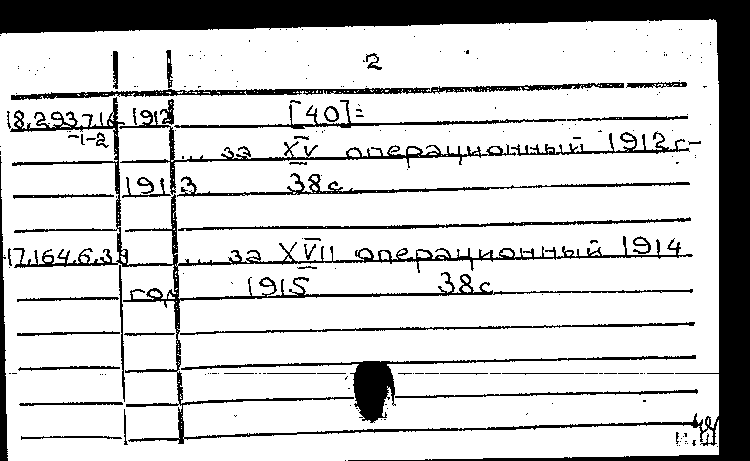 2
18.293.7.16 1912 [40]=
-1-2
... за XV операционный 1912 г-
1913 38с.
17.164.6.39 ... за XVII операционный 1914
год 1915 38с